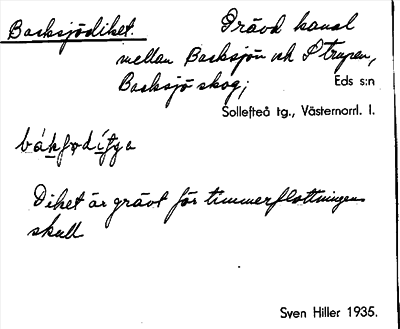 Backsjödiket.
Grävd kanal
mellan Backsjön och Strupen,
Backsjö skog; Eds s:n
Sollefteå tg., Västernorrl. l.
Diket är grävt för timmerflottningens
skull
Sven Hiller 1935.